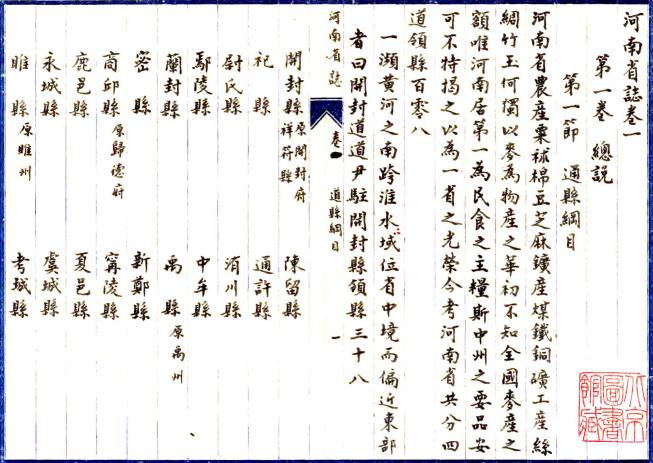 河南省誌卷一
第一卷　總說
第一節　道縣綱目
河南省農產粟秫棉豆芝麻鑛產煤鐵銅礦工產絲
綢竹玉何獨以麥為物產之華初不知全國麥產之
額唯河南居第一為民食之主糧斯中州之要品安
可不特揭之以為一省之光榮今考河南省共分四
道領縣百零八
一瀕黃河之南跨淮水域位省中境而偏近東部
者曰開封道道尹駐開封縣領縣三十八
開封縣 原開封府祥符縣　陳留縣
河南省誌　卷一　道縣綱目　一
杞縣　通許縣
尉氏縣　洧川縣
鄢陵縣　中牟縣
蘭封縣　禹縣 原禹州
密縣　新鄭縣
商邱縣 原歸德府　甯陵縣
鹿邑縣　夏邑縣
永城縣　虞城縣
睢縣 原睢州　考城縣
北京圖書館藏